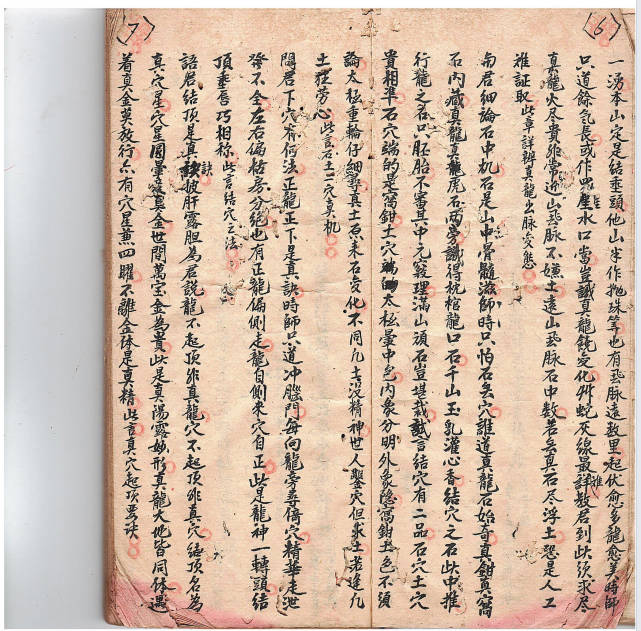 6
一湧本山定是結垂頭他山坐作拋珠等也有發脈遠數里起伏愈多龍愈美時師
只道餘氣長或作羅星塵水口當豈識真龍能變化艸蛇灰線最詳教君到此須求尽
真龍火尽貴非常近山發脈不嫌土遠山發脈石中数若無真石尽浮土恐是人工
难証取此章詳辨真龍出脈変態
为君細論石中机石是山中骨髓滋師時只怕石無穴誰道真龍石始奇真鉗真窩
石内藏真龍真虎石两旁識得枕棺龍口石千山玉乳灌心香結穴之石此中推
行龍之石只胚胎不審其中元竅理滿山頑石豈堪裁試言結穴有二品石穴土穴
貴相準石穴端的是窩鉗土穴端的太極暈中色内象分明外象隐窩鉗土色不須
論太極重輪仔細尋真土原来石変化不同凡土沒精神世人鑿穴但求土老逢凡
土狂劳心此言石土二穴真机
7
問君下穴有何法正龍正下是真訣時師只道冲腦門每向龍旁尋倚穴精華走泄
發不全左右偏枯房分絶也有正龍偏側走龍自側来穴自正此是龍神一轉頭結
頂垂唇巧相称此言結穴之法
語君結頂是真訣披肝露胆為君説龍不起頂非真龍穴不起頂非真穴結頂名為
真穴星穴星圓暈真金世間萬宝金為貴此是真陽露妙形真龍大地皆同体遇
着真金莫放行亦有穴星兼四曜不離金体是真精此言真穴起頂要訣